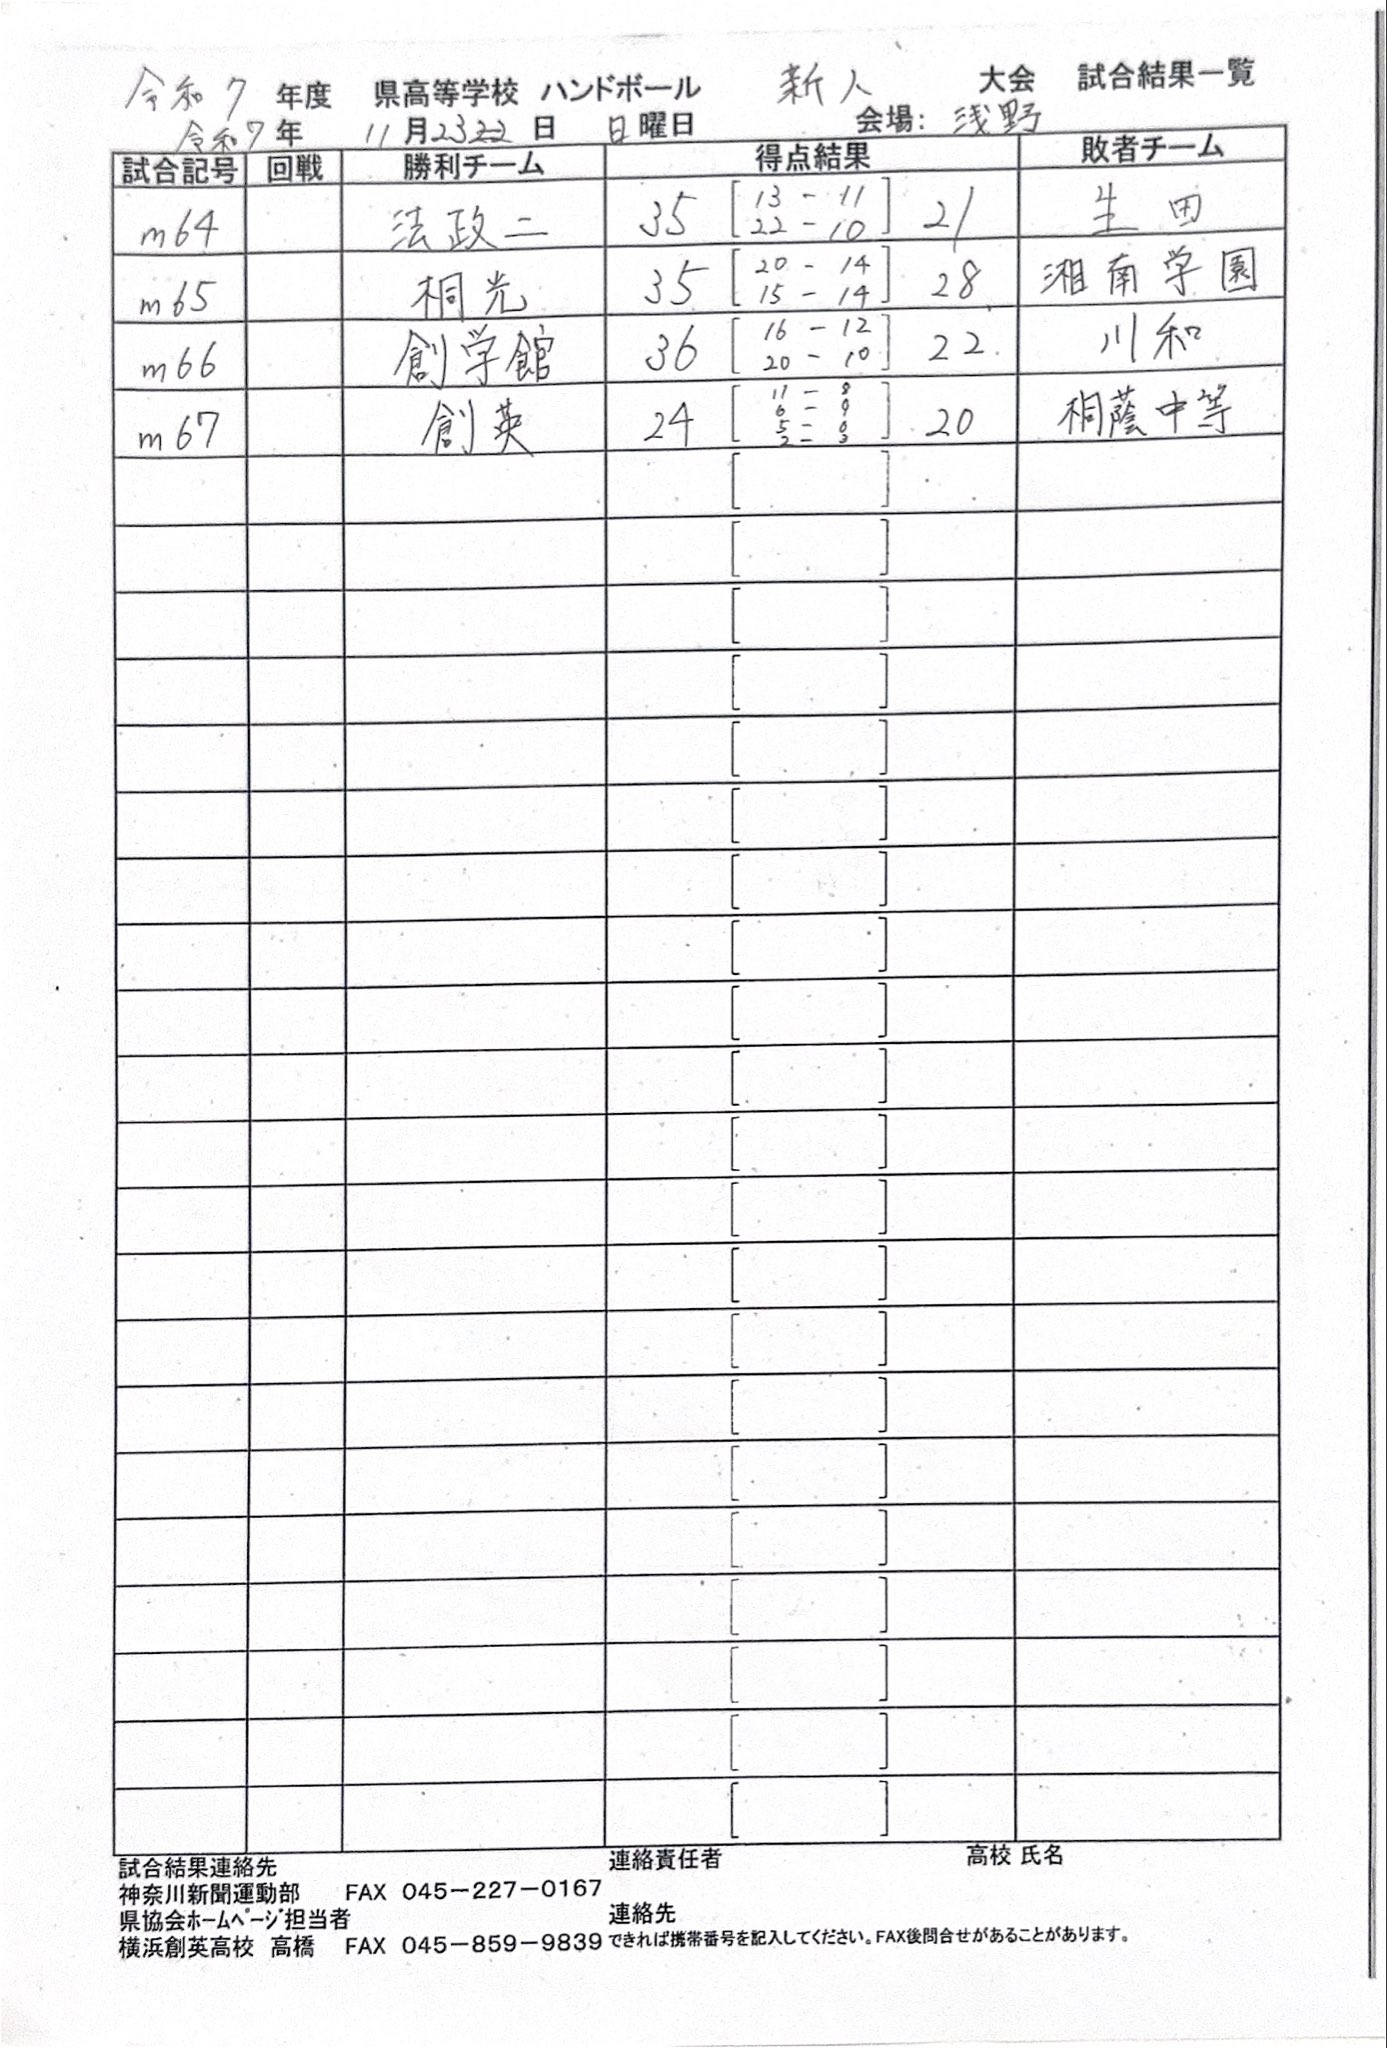 令和7年度 県高等学校 ハンドボール 新人 大会 試合結果一覧
令和7年 11月23 22日 日曜日 会場: 浅野
試合記号 回戦 勝利チーム 得点結果 敗者チーム
m64 法政二 35 [13-11 22-10] 21 生田
m65 桐光 35 [20-14 15-14] 28 湘南学園
m66 創学館 36 [16-12 20-10] 22 川和
m67 創英 24 [11-8 6-9 5-0 2-3] 20 桐蔭中等
試合結果連絡先 連絡責任者 高校 氏名
神奈川新聞運動部 FAX 045-227-0167
県協会ホームページ担当者 連絡先
横浜創英高校 高橋 FAX 045-859-9839 できれば携帯番号を記入してください。FAX後問合せがあることがあります。